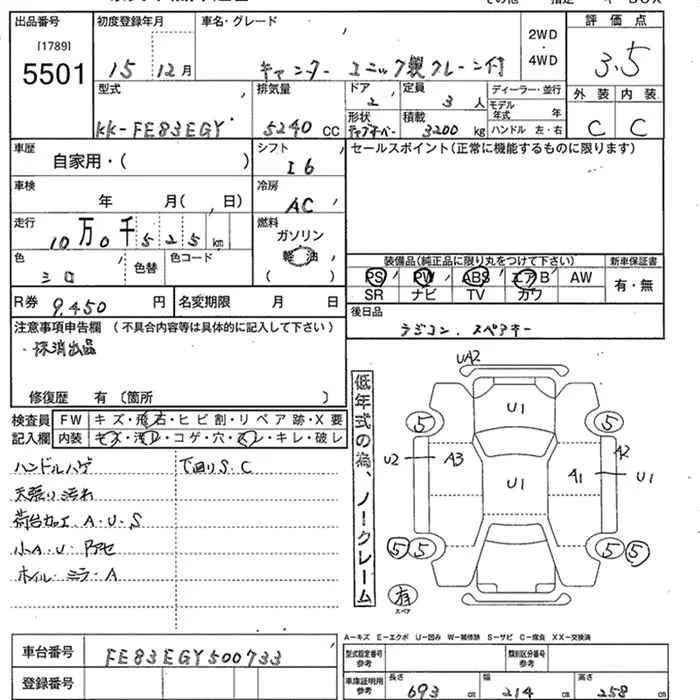 出品番号
[1789]
5501
初度登録年月
15 12月
車名・グレード
キャンター ユニック製クレーン付
2WD
・
4WD
評価点
3.5
型式
KK-FE83EGY
排気量
5240 CC
ドア
2
定員
3 人
形状
積載
3200 kg
ディーラー・並行
モデル年式 年
ハンドル 左・右
外装 内装
C C
車歴
自家用・( )
シフト
I6
セールスポイント(正常に機能するものに限ります)
車検
年 月( 、 日)
冷房
AC
走行
10万0千525km
燃料
ガソリン
軽油
( )
色
シロ
色替
色コード
装備品(純正品に限り丸をつけて下さい)
PS PW ABS エアB AW
SR ナビ TV カワ
新車保証書
有・無
R券 9,450 円
名変期限 月 日
後日品
ラジコン、スペアキー
注意事項申告欄(不具合内容等は具体的に記入して下さい)
・保消出品
修復歴 有〔箇所 〕
検査員記入欄
FW キズ・飛石・ヒビ割・リペア跡・X要
内装 キズ・汚レ・コゲ・穴・スレ・キレ・破レ
ハンドルハゲ
下回りS.C
天張り汚れ
荷台加工 A・U・S
小A・U・アセ
ホイル・ミラーA
低年式の為、ノークレーム
UA2
U1
5 5
U2 A3 U1 A1 A2 U1
5 5 5 5
有
スペア
A-キズ E-エクボ U-凹み W-補修跡 S-サビ C-腐食 XX-交換済
車台番号 FE83EGY500733
登録番号
型式指定番号
参考
類別区分番号
参考
車庫証明用
参考
長さ 693 cm
幅 214 cm
高さ 258 cm